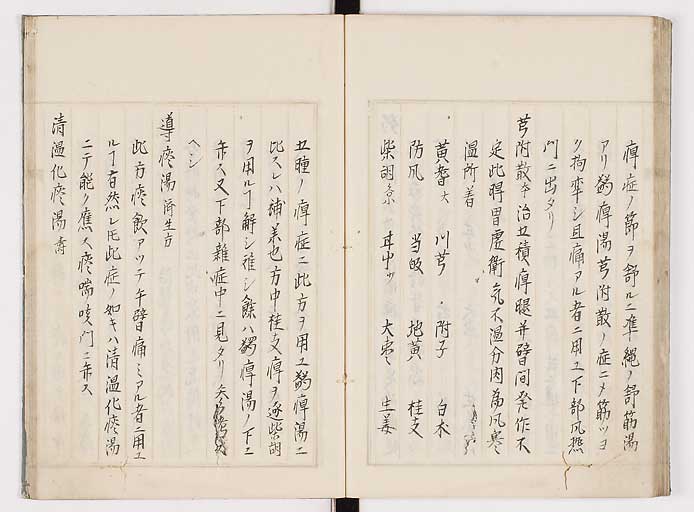 痺症ノ節ヲ舒ルニ準縄ノ舒筋湯
アリ蠲痺湯芎附散ノ症ニメ筋ツヨ
ク拘牽シ且痛アル者ニ用ユ下部風
門ニ出タリ
芎附散 治五積痺腿并臂間発作不
定此得胃虚衛気不温分肉為風寒
湿所着
黄耆 川芎 附子 白朮
防風 当皈 地黄 桂支
柴胡 甘中 大棗 生姜
五種ノ痺症ニ此方ヲ用ユ蠲痺湯ニ
比スレハ補兼也方中桂支痺ヲ逐柴胡
ヲ用ルヿ解シ難シ餘ハ蠲痺湯ノ下ニ
弁ス又下部雑症中ニ見タリ
ヘシ
導痰湯 済生方
此方痰飲アツテ臂痛ミアル者ニ用ユ
ルヿ有然レ𪜈此症ノ如キハ清湿化痰湯
ニテ能ク應ス痰喘咳門ニ弁ス
清湿化痰湯 壽